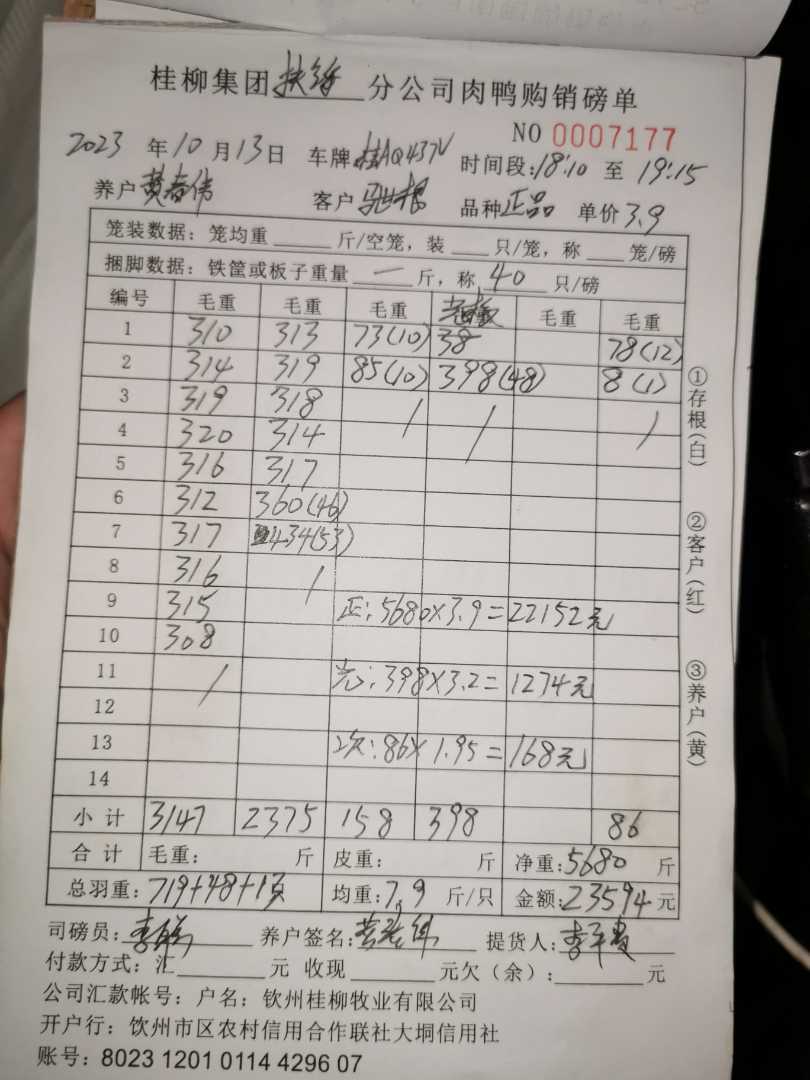 桂柳集团 分公司肉鸭购销磅单
NO 0007177
2023 年 10 月 13 日 车牌 桂AQ437V 时间段:18:10 至 19:15
养户 黄春伟 客户 品种 正品 单价 3.9
笼装数据: 笼均重 斤/空笼, 装 只/笼, 称 笼/磅
捆脚数据: 铁筐或板子重量 一 斤, 称 40 只/磅
编号 毛重 毛重 毛重 毛重 毛重
1 310 313 73(10) 38 78(12)
2 314 319 85(10) 398(48) 8(1)
3 319 318 / / /
4 320 314
5 316 317
6 312 360(46)
7 317 434(53)
8 316 /
9 315 正:5680×3.9=22152元
10 308
11 / 光:398×3.2=1274元
12
13 次:86×1.95=168元
14
小计 3147 2375 158 398 86
合计 毛重: 斤 皮重: 斤 净重:5680 斤
总羽重:719+48+1 均重:7.9 斤/只 金额:23594 元
司磅员: 养户签名:黄春伟 提货人:
付款方式:汇 元 收现 元欠(余): 元
公司汇款帐号: 户名: 钦州桂柳牧业有限公司
开户行: 钦州市区农村信用合作联社大垌信用社
账号: 8023 1201 0114 4296 07
①存根(白)
②客户(红)
③养户(黄)